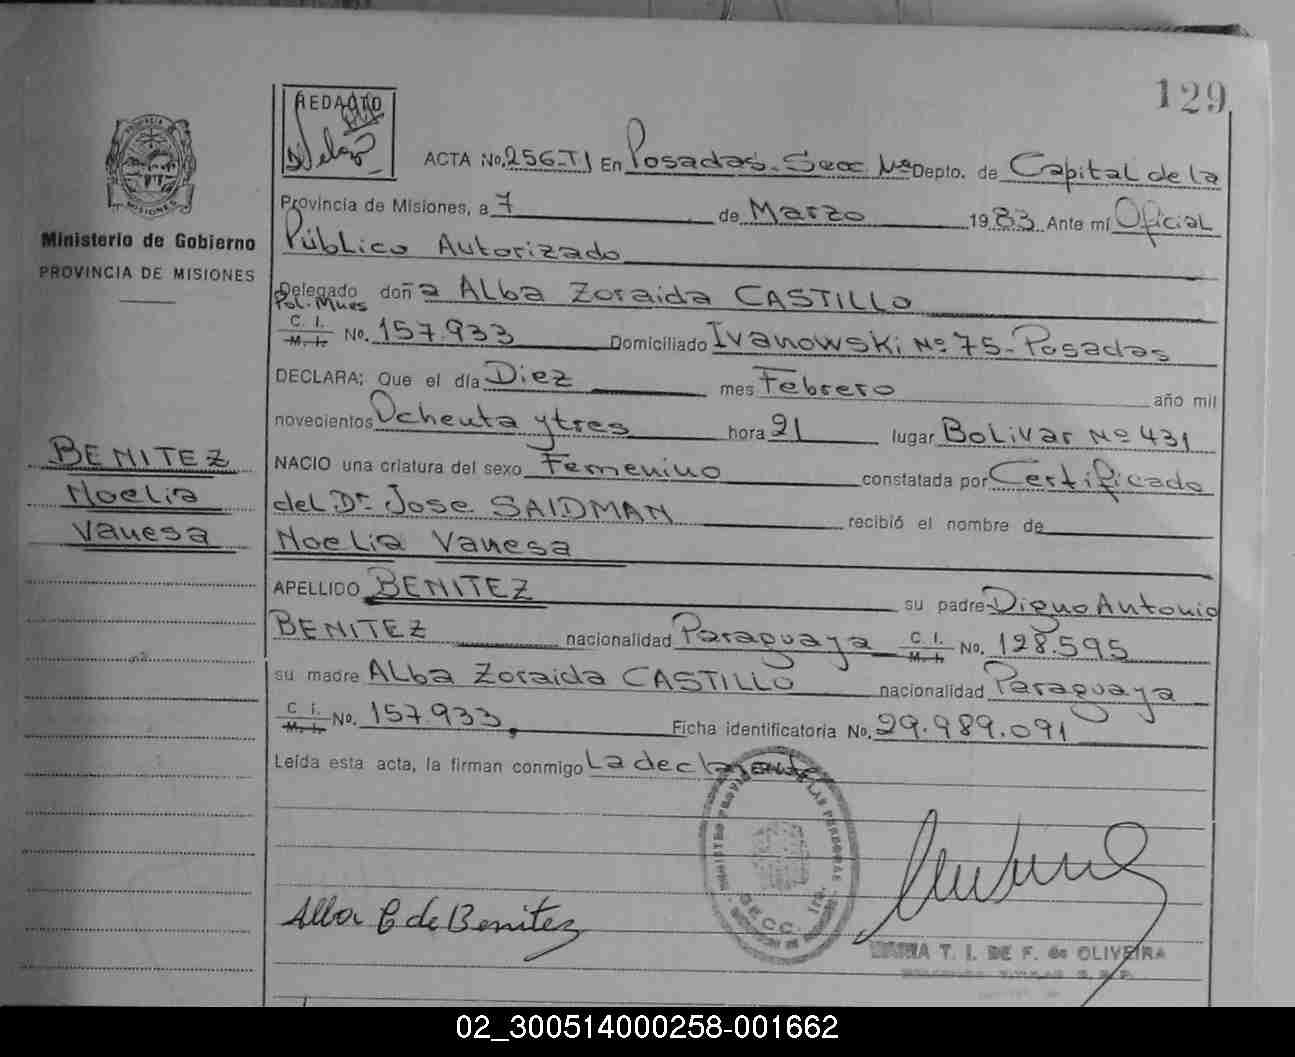 129
REDACTO
ACTA No. 256-TI En Posadas. Secc 1ra Depto. de Capital de la
Provincia de Misiones, a 7 de Marzo 1983 Ante mí Oficial
Público Autorizado
Delegado doña Alba Zoraida CASTILLO
Pol. Mnes
C. I. M. I. No. 157.933 Domiciliado Ivanowski Nº 75 - Posadas
DECLARA; Que el día Diez mes Febrero año mil
novecientos Ochenta y tres hora 21 lugar Bolivar Nº 431
NACIO una criatura del sexo Femenino constatada por Certificado
del Dr Jose SAIDMAN recibió el nombre de
Noelia Vanesa
APELLIDO BENITEZ su padre Digno Antonio
BENITEZ nacionalidad Paraguaya C. I. M. I. No. 128.595
su madre Alba Zoraida CASTILLO nacionalidad Paraguaya
C. I. M. I. No. 157.933, Ficha identificatoria No. 29.989.091
Leída esta acta, la firman conmigo La declarante
Alba C de Benitez
MARIA T. I. DE F. de OLIVEIRA
PROVINCIA
MISIONES
Ministerio de Gobierno
PROVINCIA DE MISIONES
BENITEZ
Noelia
Vanesa
REGISTRO PROVINCIAL DE LAS PERSONAS
SECC. 1ra.
02_300514000258-001662